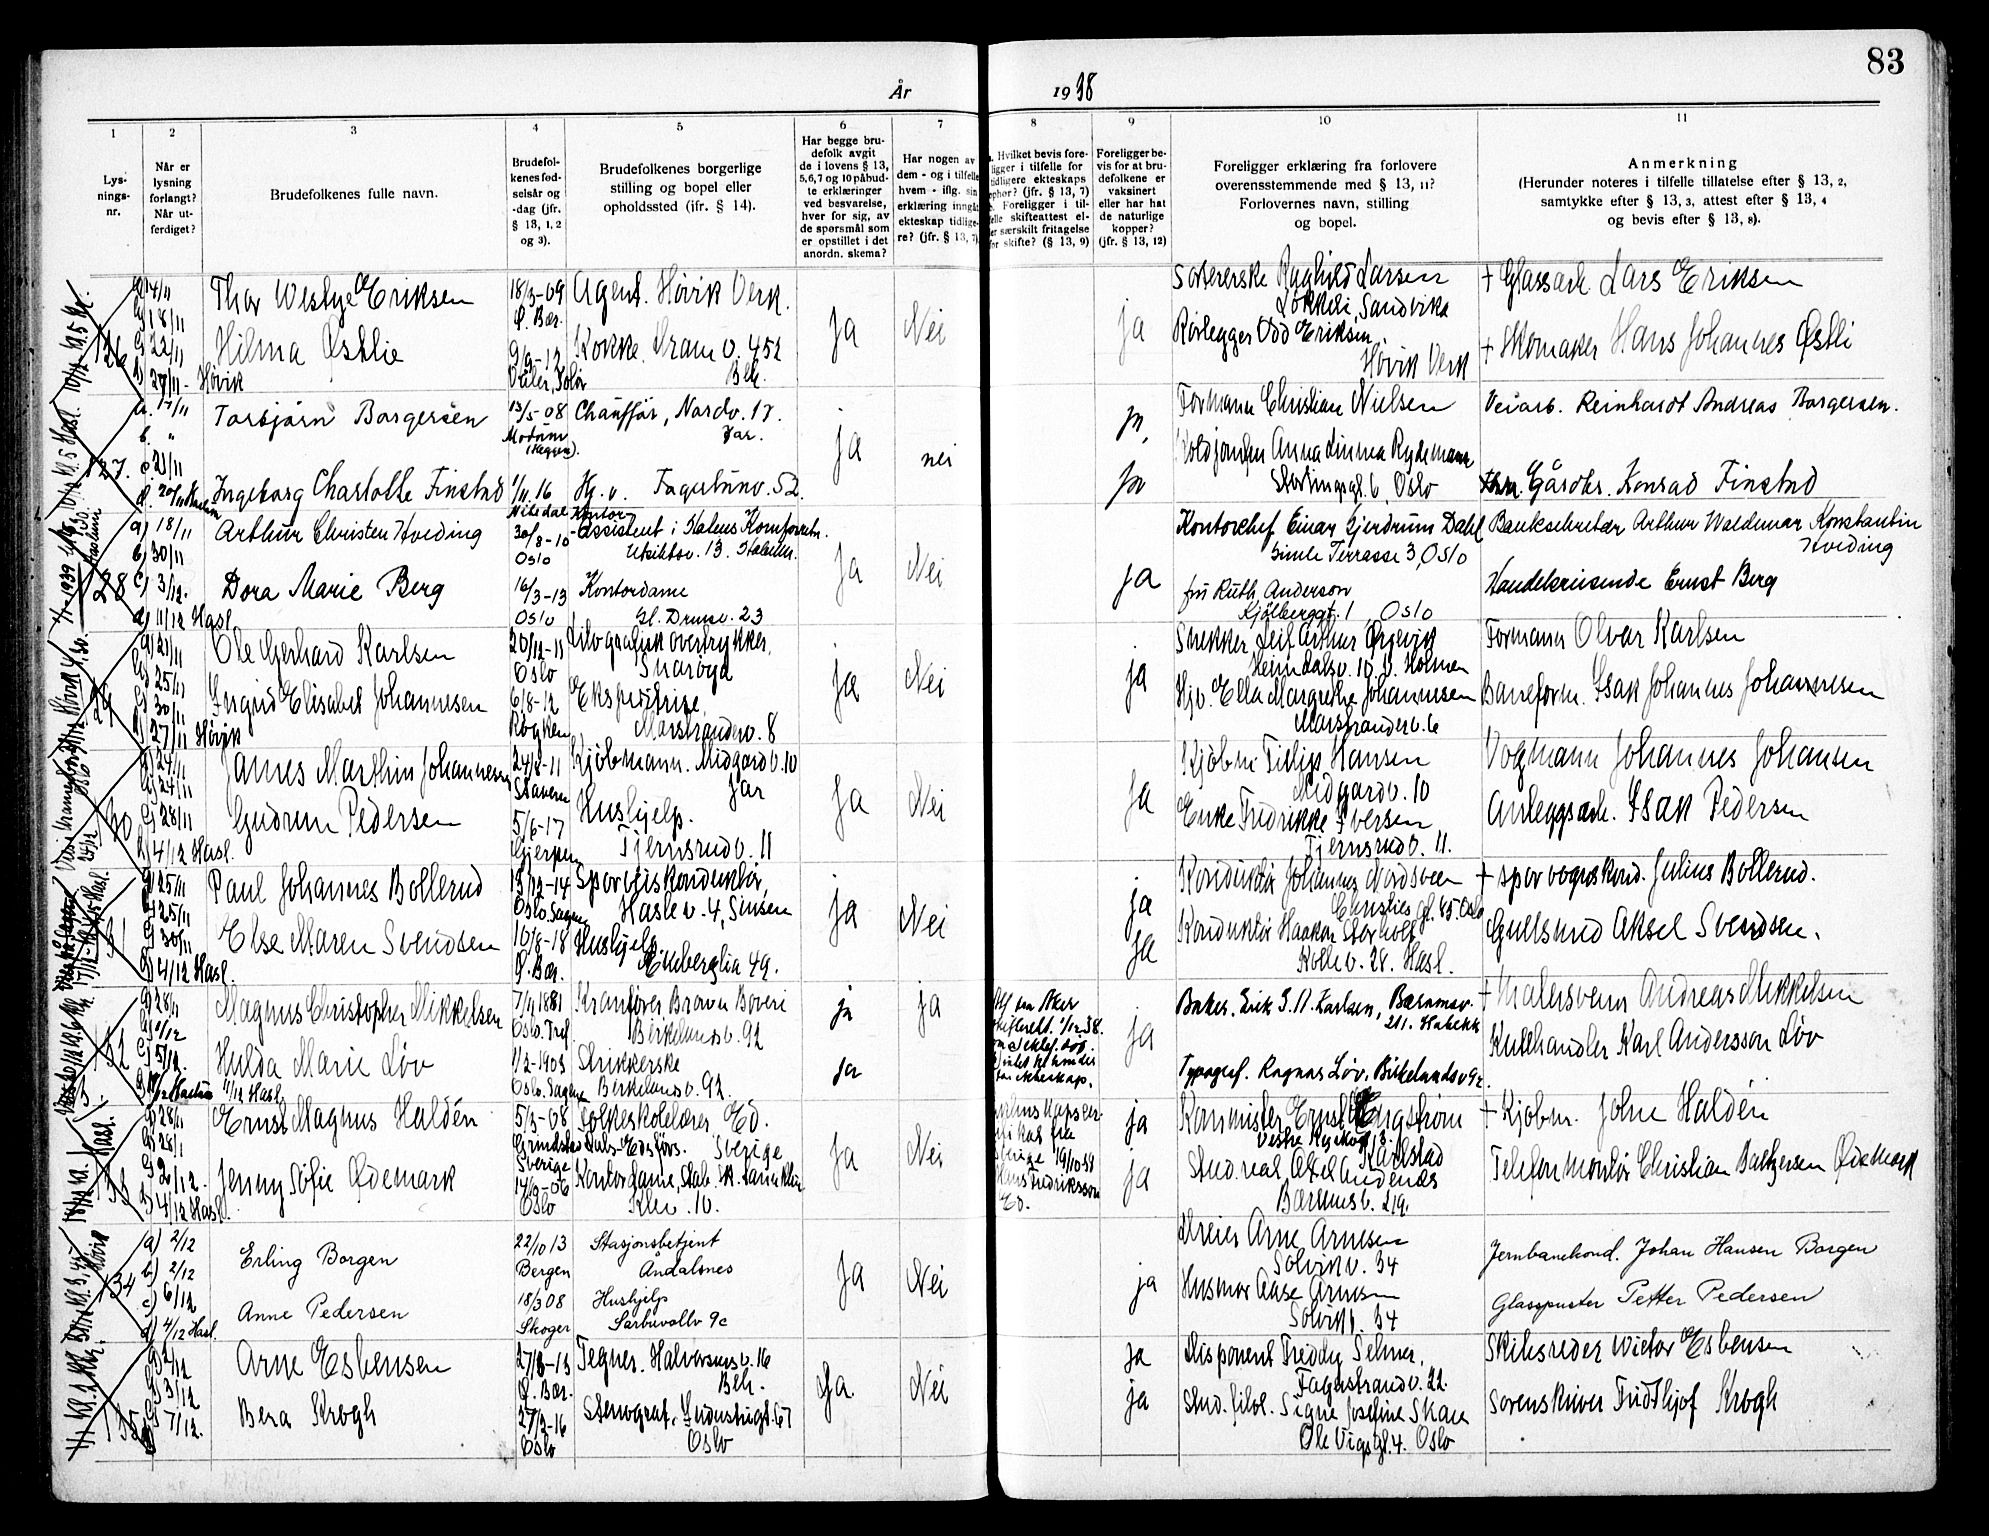 83
År
1938
1
Lys-
nings-
nr.
2
Når er
lysning
forlangt?
Når ut-
ferdiget?
3
Brudefolkenes fulle navn.
4
Brudefol-
kenes fød-
selsår og
-dag (jfr.
§ 13, 1, 2
og 3).
5
Brudefolkenes borgerlige
stilling og bopel eller
opholdssted (ifr. § 14).
6
Har begge bru-
defolk avgit
de i lovens § 13,
5,6,7 og 10 påbud-
te erklæringer
ved besvarelse,
hver for sig, av
de spørsmål som
er opstillet i det
anordn. skema?
7
Har nogen av
dem - og i tilfelle
hvem - iflg. sin
erklæring inngåt
ekteskap tidlige-
re? (jfr. § 13, 7)
8
Hvilket bevis fore-
ligger i tilfelle for
tidligere ekteskaps
ophør? (jfr. § 13, 7)
Foreligger i til-
felle skifteattest el-
ler særskilt fritagelse
for skifte? (§ 13, 9)
9
Foreligger be-
vis for at bru-
defolkene er
vaksinert
eller har hat
de naturlige
kopper?
(jfr. § 13, 12)
10
Foreligger erklæring fra forlovere
overensstemmende med § 13, 11?
Forlovernes navn, stilling
og bopel.
11
Anmerkning
(Herunder noteres i tilfelle tillatelse efter § 13, 2,
samtykke efter § 13, 3, attest efter § 13, 4
og bevis efter § 13, 8).
126
a) 14/11
b) 18/11
c) 22/11
d) 27/11 - Høvik
Thor Westye Eriksen
18/3-09
Ø. Bær.
Agent. Høvik Verk.
Hilma Østlie
9/9-12
Våler, Solør
Kokke. Dram v. 452
Blk.
Ja
Nei
ja
Sortererske Ragnhild Larsen
Løkkeli, Sandvika
Rørlegger Odd Eriksen
Høvik Verk
+ Glassarb. Lars Eriksen
+ Skomaker Hans Johannes Østli
127.
a. 17/11
b. "
c. 23/11
Torbjørn Borgersen
13/5-08
Modum
Chauffør, Nordv. 17.
Jar.
Ingeborg Charlotte Finstad
1/11.16
Nitedal
Hj. v. Fagertunv. 52.
ja
nei
ja,
ja
Formann Christian Nielsen
Anna Linnea Rydemann
Stortingsgt. 6, Oslo
Veiarb. Reinhardt Andreas Borgersen.
Gårdbr. Konrad Finstad
128
a) 18/11
b) 30/11
c) 3/12.
d) 11/12 Hasl.
Arthur Christen Hveding
30/8-10
Oslo
Kontor-
assistent i Statens Kornforretn.
Utsiktsv. 13. Stabekk.
Dora Marie Berg
16/3-13
Oslo
Kontordame
Gl. Dramsv. 23
Ja
Nei
ja
Kontorchef Einar Gjerdrum Dahl
Simle Terrasse 3, Oslo
fru Ruth Anderson
Kjølberggt. 1, Oslo
Banksekretær Arthur Waldemar Konstantin
Hveding
Handelsreisende Ernst Berg
129
a) 21/11
b) 25/11
c) 30/11
d) 27/11 Høvik
Ole Gerhard Karlsen
20/12-11
Oslo
Litografisk overtrykker,
Snarøya
Ingrid Elisabet Johannesen
6/8-12
Røyken
Ekspeditrise,
Marstranderv. 8
ja
Nei
ja
Snekker Leif Arthur Ørjevik
Heimdalsv. 10, V. Holmen
Hjv. Ella Margrethe Johannesen
Marstranderv. 6
Formann Olvar Karlsen
Baneform. Isak Johannes Johannesen
130
a) 24/11
b) 24/11
c) 28/11
d) 4/12 Hasl.
James Marthin Johannesen
24/8-11
Stavern
Kjøbmann. Midgardv. 10
Jar
Gudrun Pedersen
5/6-17
Gjerpen
Hushjelp.
Tjernsrudv. 11
Ja
Nei
Ja
Kjøbm. Filip Hansen
Midgardv. 10
Enke Fredrikke Iversen
Tjernsrudv. 11.
Vogmann Johannes Johansen
Anleggsarb. Isak Pedersen
131
a) 25/11
b) 25/11
c) 30/11
d) 4/12 Hasl.
Paul Johannes Bollerud
13/12-14
Oslo. Sagene
Sporveiskonduktør,
Haslev. 4, Sinsen
Else Maren Svendsen
10/8-18
Ø. Bær.
Hushjelp
49.
ja
Nei
ja
Ja
Konduktør Johannes Nordsveen
Christies gt. 85 Oslo
Konduktør Haakon Storholt
Kollev. 28. Hasl.
+ sporvognskond. Julius Bollerud.
Gullsmed Aksel Svendsen.
132
a) 28/11
b) 1/12
c) 5/12.
11/12 Hasl.
Magnus Christopher Mikkelsen
7/11 1881
Oslo. Tref.
Kranfører Brown Boveri
Birkelundsv. 92
Hulda Marie Løv
1/2-1903
Oslo. Sagene
Strikkerske
Birkelundsv. 92.
ja
ja
ja
Att. fra Aker
skifterett. 1/12 38.
ja
Baker. Erik G. A. Karlsen, Bærumsv.
211. Stabekk
Typograf. Ragnar Løv, Birkelundsv 92.
+ Malersvenn Andreas Mikkelsen
Kullhandler Karl Andersson Löv
133
a) 28/11
b) 28/11
c) 2/12.
d) 4/12 Hasl.
Ernst Magnus Haldén
5/3-08
Sverige
Folkeskolelærer Ed.
Dals-Ed Sverige
Jenny Sofie Ødemark
14/3-06
Oslo
Kontordame, Stab. Sk. Tannklin.
Klev. 10.
Ja
Nei
Sverige 19/10-38
Fredriksson
Ed.
ja
ja
Kanmister Ernst Engström
Karlstad
Stud. real. Aksel Andenæs
Bærumsv. 219.
+ Kjøbm. John Haldén
Telefonmontør Christian Baltzersen Ødemark
134
a) 2/12
b) 2/12
c) 6/12
d) 4/12 Hasl.
Erling Borgen
22/10 13
Bergen
Stasjonsbetjent
Åndalsnes
Anne Pedersen
18/3 08
Skoger
Hushjelp
Sarbuvollv 9c
Ja
Nei
ja
Dreier Arne Arnesen
Solvikv. 34
Husmor Aase Arnesen
Solvikv. 34
Jernbanekond. Johan Hansen Borgen
Glasspuster Petter Pedersen
135
a) 2/12
b) 3/12
c) 7/12.
Arne Esbensen
27/8-13
Ø. Bær.
Tegner. Halvorsensv. 16
Blk.
Bera Krogh
27/2-16
Oslo
Stenograf. Industrigt. 67
Oslo
Ja.
Nei
ja
ja
Disponent Freddy Selmer,
Fagerstrandv. 22.
Stud. filol. Signe Josefine Skau
Ole Vigs gt. 4. Oslo
Skibsreder Wictor Esbensen
Sorenskriver Fridthjof Krogh